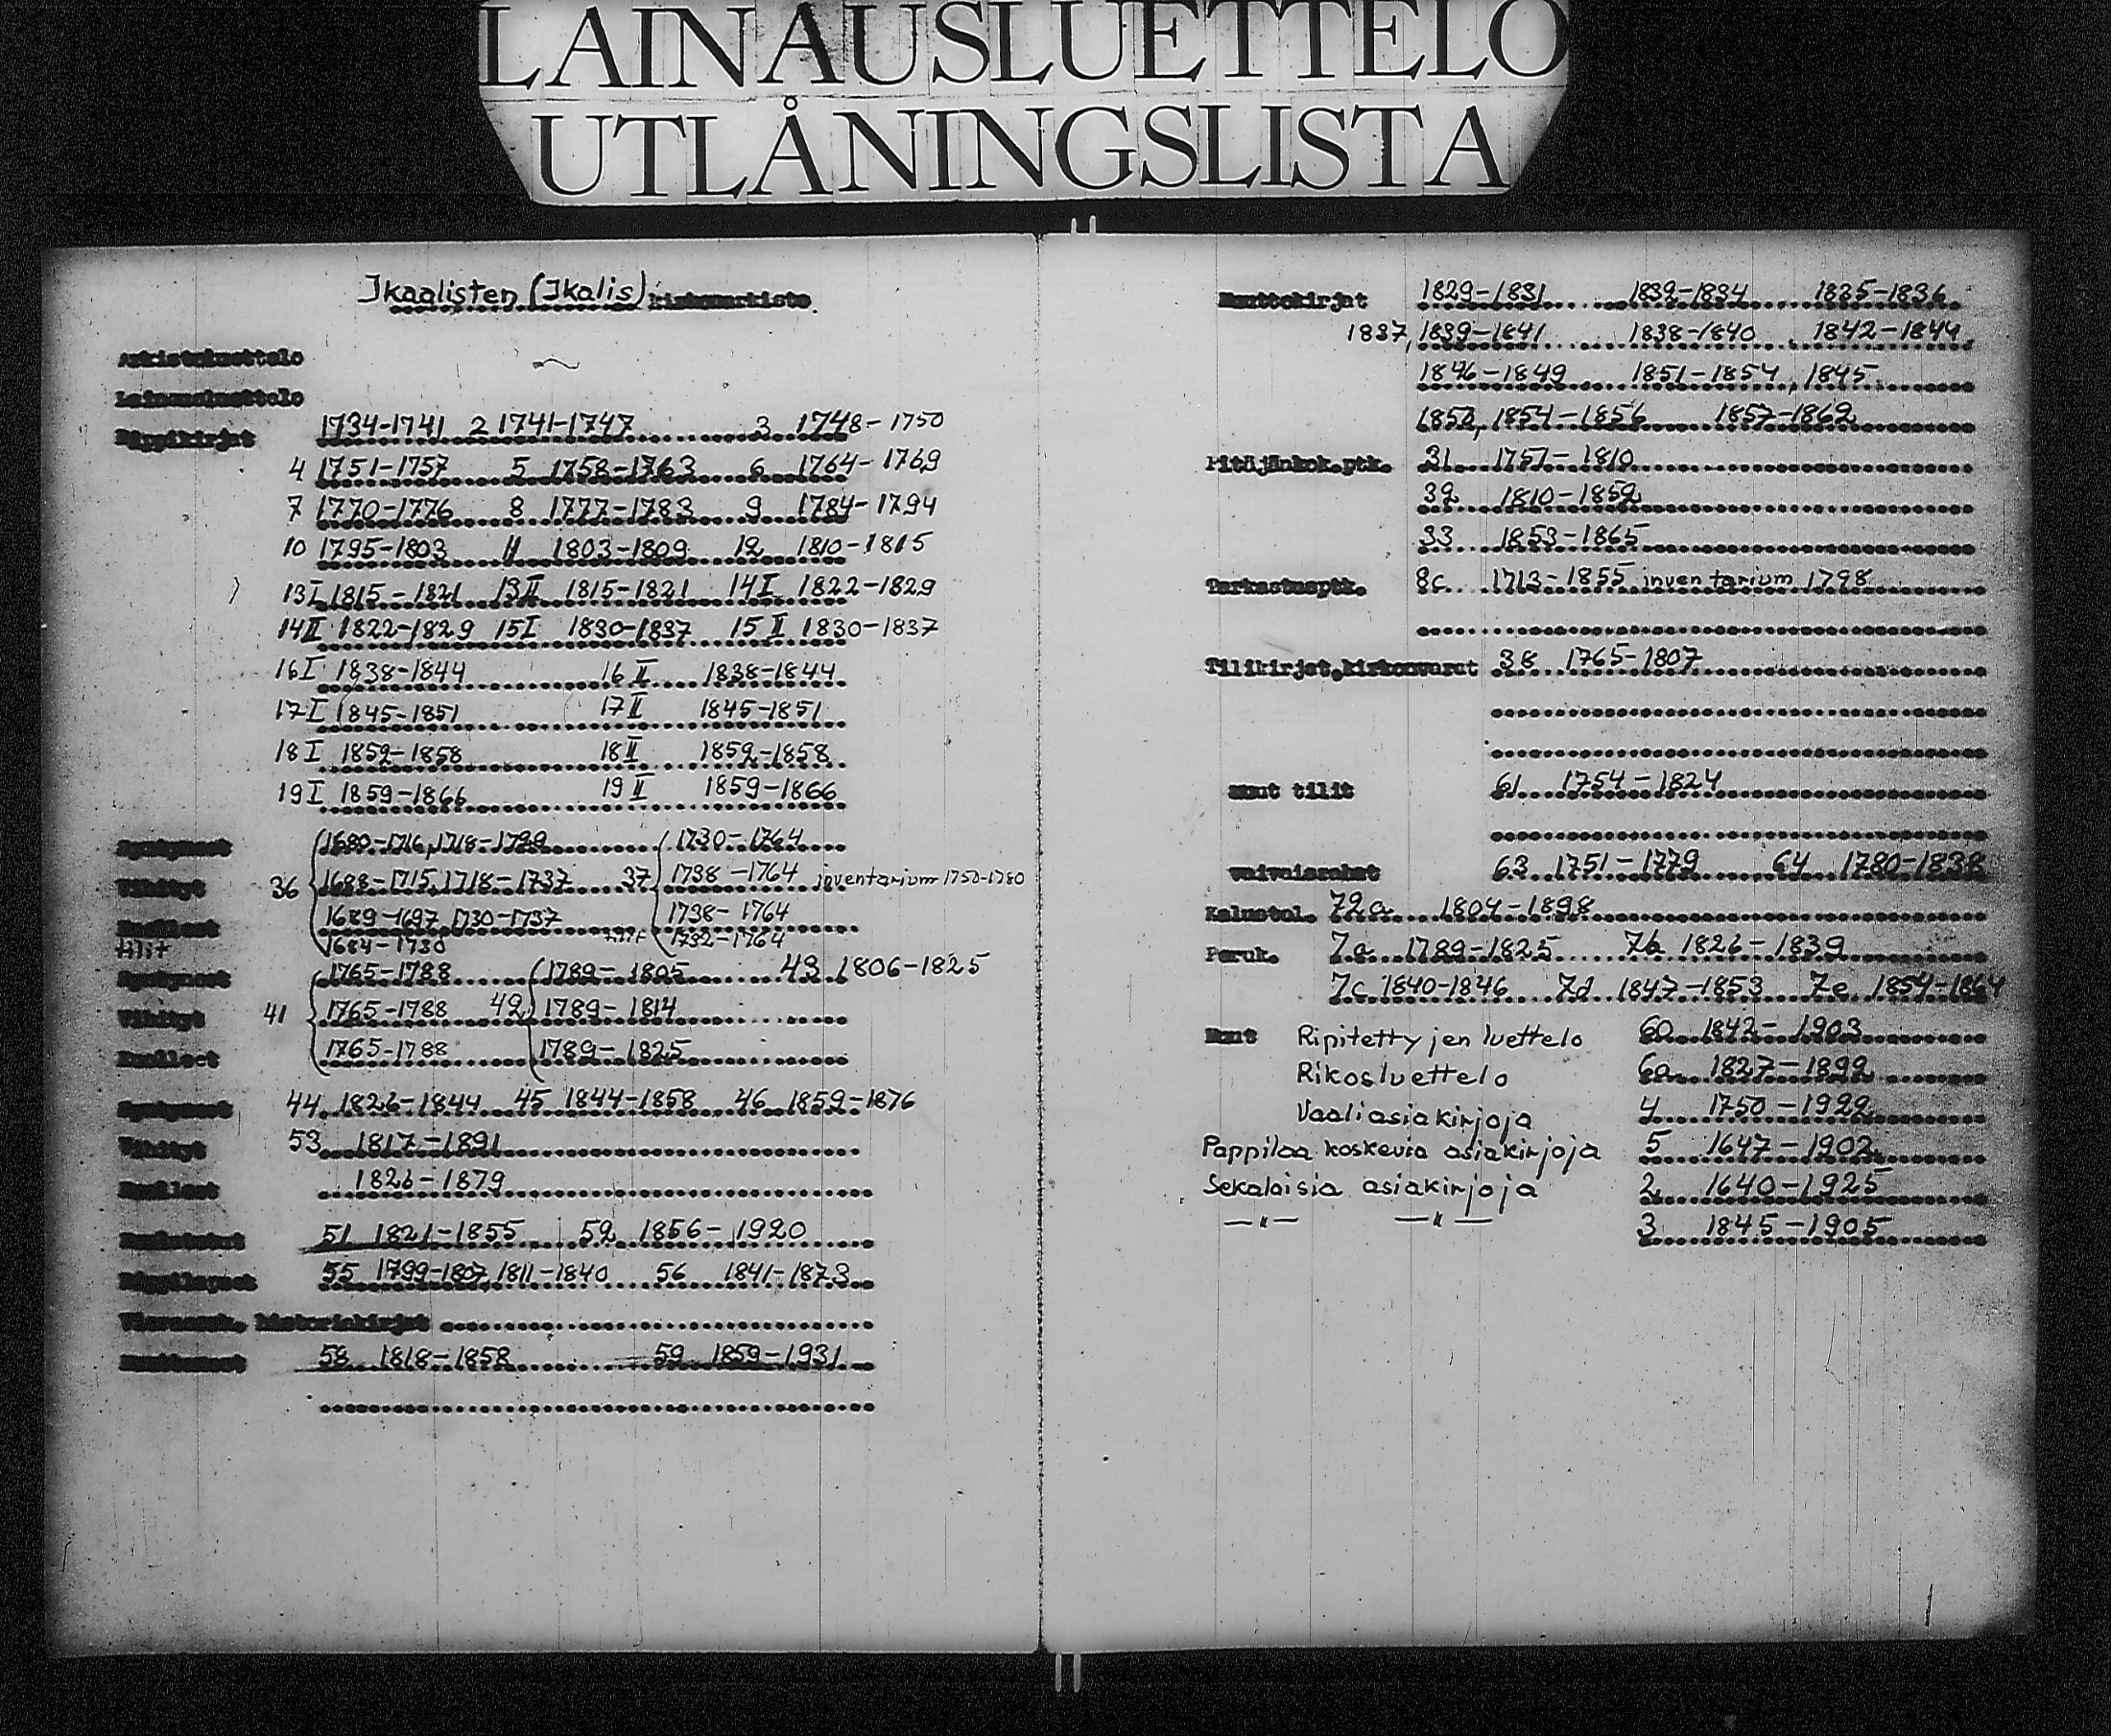 LAINAUSLUETTELO
UTLÅNINGSLISTA
Ikaalisten (Ikalis) kirkonarkisto
Arkistoluettelo
Lainausluettelo
Rippikirjat 1734-1741 2 1741-1747 3 1748-1750
4 1751-1757 5 1758-1763 6 1764-1769
7 1770-1776 8 1777-1783 9 1784-1794
10 1795-1803 11 1803-1809 12 1810-1815
13 I 1815-1821 13 II 1815-1821 14 I 1822-1829
14 II 1822-1829 15 I 1830-1837 15 II 1830-1837
16 I 1838-1844 16 II 1838-1844
17 I 1845-1851 17 II 1845-1851
18 I 1852-1858 18 II 1852-1858
19 I 1859-1866 19 II 1859-1866
Syntyneet 1680-1716, 1718-1729 1730-1764
Vihityt 36 1688-1715, 1718-1737 37 1738-1764 inventarium 1750-1780
Kuolleet 1689-1697, 1730-1737 1738-1764
tilit 1684-1730 tilit 1732-1764
Syntyneet 1765-1788 1789-1805 43 1806-1825
Vihityt 41 1765-1788 42 1789-1814
Kuolleet 1765-1788 1789-1825
Syntyneet 44 1826-1844 45 1844-1858 46 1859-1876
Vihityt 53 1817-1891
Kuolleet 1826-1879
51 1821-1855 52 1856-1920
55 1799-1807, 1811-1840 56 1841-1873
historiakirjat
Muuttaneet 58 1818-1858 59 1859-1931
Muuttokirjat 1829-1831 1832-1834 1835-1836
1837, 1839-1841 1838-1840 1842-1844,
1846-1849 1851-1854, 1845
1853, 1854-1856 1857-1862
Pitäjänkok.ptk. 31 1757-1810
32 1810-1852
33 1853-1865
Tarkastusptk. 8c 1713-1855 inventarium 1798
Tilikirjat, kirkonvarat 38 1765-1807
muut tilit 61 1754-1824
vaivaisrahat 63 1751-1779 64 1780-1838
Kalustol. 72a 1804-1898
Peruk. 7a 1789-1825 7b 1826-1839
7c 1840-1846 7d 1847-1853 7e 1854-1864
Muut Ripitettyjen luettelo 60 1842-1903
Rikosluettelo 6a 1827-1899
Vaaliasiakirjoja 4 1750-1922
Pappilaa koskevia asiakirjoja 5 1647-1902
Sekalaisia asiakirjoja 2 1640-1925
—"— —"— 3 1845-1905